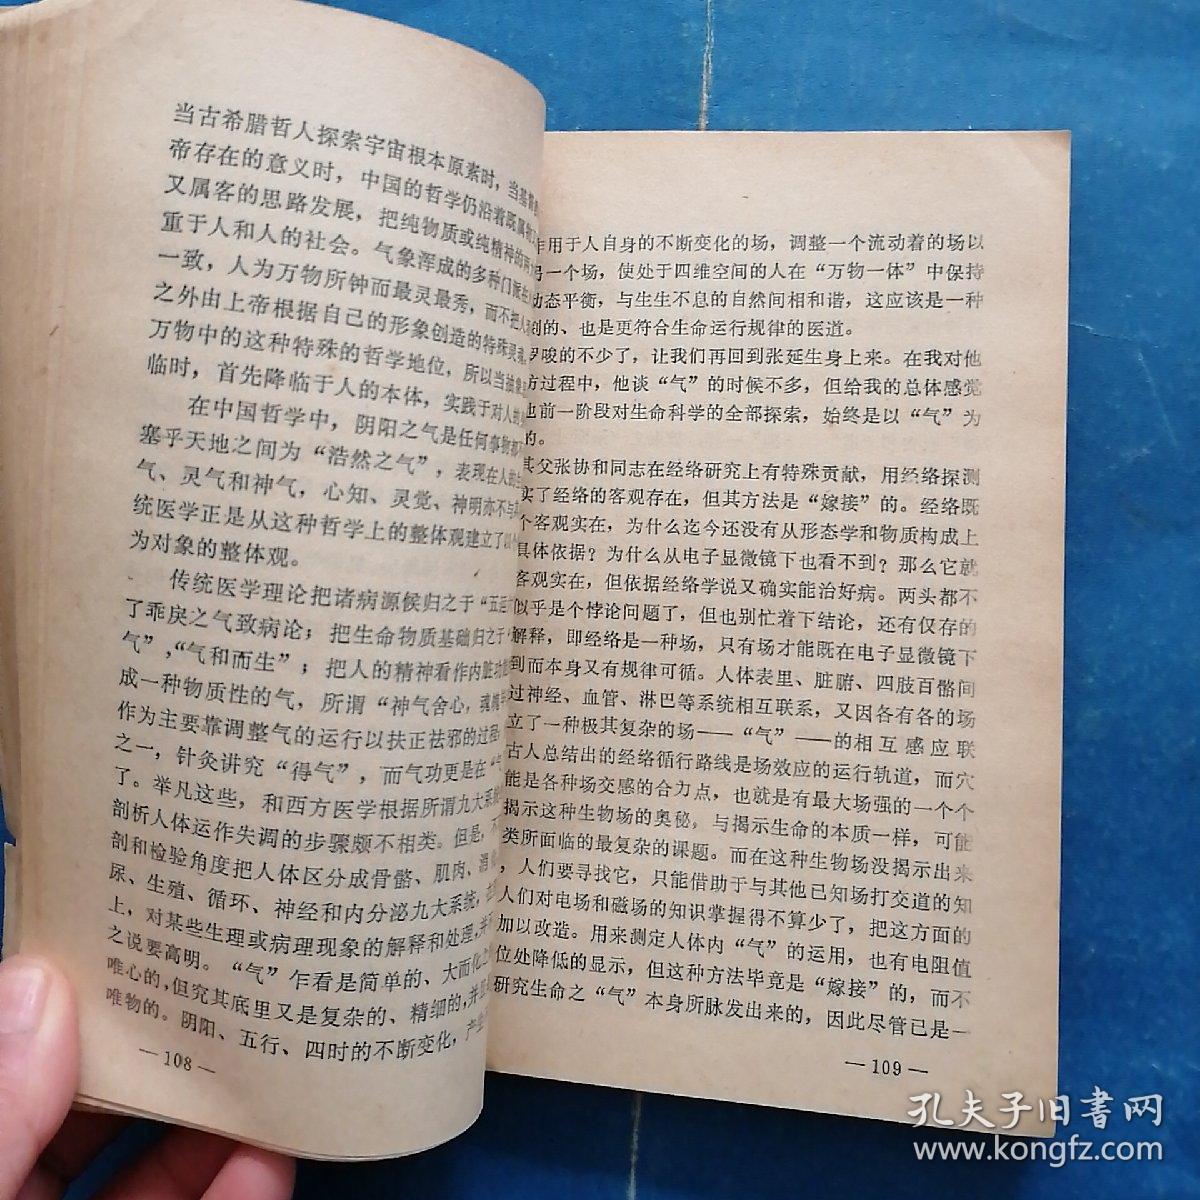 当古希腊哲人探索宇宙根本原素时，当基督
帝存在的意义时，中国的哲学仍沿着既属
又属客的思路发展，把纯物质或纯精神的两
重于人和人的社会。气象浑成的多种门派在
一致，人为万物所钟而最灵最秀，而不把人
之外由上帝根据自己的形象创造的特殊灵
万物中的这种特殊的哲学地位，所以当抽象
临时，首先降临于人的本体，实践于对人的
在中国哲学中，阴阳之气是任何事物都
塞乎天地之间为“浩然之气”，表现在人的
气、灵气和神气，心知、灵觉、神明亦不与
统医学正是从这种哲学上的整体观建立了以
为对象的整体观。
传统医学理论把诸病源候归之于“五运
了乖戾之气致病论；把生命物质基础归之于“
气”，“气和而生”；把人的精神看作内脏功能
成一种物质性的气，所谓“神气舍心，魂魄
作为主要靠调整气的运行以扶正祛邪的过程
之一，针灸讲究“得气”，而气功更是在“气
了。举凡这些，和西方医学根据所谓九大系统
剖析人体运作失调的步骤颇不相类。但是，不
剖和检验角度把人体区分成骨骼、肌肉、消
尿、生殖、循环、神经和内分泌九大系统，在
上，对某些生理或病理现象的解释和处理，并
之说要高明。“气”乍看是简单的、大而化之
唯心的，但究其底里又是复杂的、精细的，并且
唯物的。阴阳、五行、四时的不断变化，产生
—108—
作用于人自身的不断变化的场，调整一个流动着的场以
另一个场，使处于四维空间的人在“万物一体”中保持
动态平衡，与生生不息的自然间相和谐，这应该是一种
利的、也是更符合生命运行规律的医道。
罗唆的不少了，让我们再回到张延生身上来。在我对他
方过程中，他谈“气”的时候不多，但给我的总体感觉
也前一阶段对生命科学的全部探索，始终是以“气”为
的。
其父张协和同志在经络研究上有特殊贡献，用经络探测
实了经络的客观存在，但其方法是“嫁接”的。经络既
个客观实在，为什么迄今还没有从形态学和物质构成上
具体依据？为什么从电子显微镜下也看不到？那么它就
客观实在，但依据经络学说又确实能治好病。两头都不
以乎是个悖论问题了，但也别忙着下结论，还有仅存的
解释，即经络是一种场，只有场才能既在电子显微镜下
到而本身又有规律可循。人体表里、脏腑、四肢百骼间
过神经、血管、淋巴等系统相互联系，又因各有各的场
立了一种极其复杂的场——“气”——的相互感应联
古人总结出的经络循行路线是场效应的运行轨道，而穴
能是各种场交感的合力点，也就是有最大场强的一个个
揭示这种生物场的奥秘，与揭示生命的本质一样，可能
类所面临的最复杂的课题。而在这种生物场没揭示出来
，人们要寻找它，只能借助于与其他已知场打交道的知
人们对电场和磁场的知识掌握得不算少了，把这方面的
加以改造。用来测定人体内“气”的运用，也有电阻值
位处降低的显示，但这种方法毕竟是“嫁接”的，而不
研究生命之“气”本身所脉发出来的，因此尽管已是一
—109—
孔夫子旧书网
www.kongfz.com